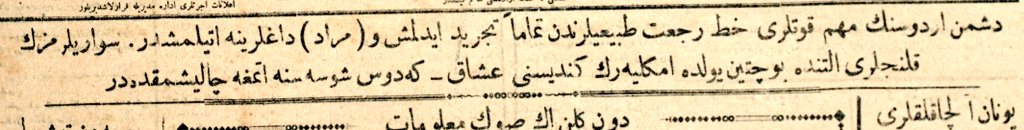 اعلانات اجرتلری اداره مدیریله قرارلاشدیریلور
دشمن اردوسنك مهم قوتلری خط رجعت طبیعیلرندن تماماً تجرید ایدلمش و (مراد) داغلرینه آتیلمشدر. سواریلرمزك
قلنجلری آلتنده بوچتین یولده امكلیه‌رك كندیسنی عشاق ـ كه‌دوس شوسه‌سنه آتمغه چالیشمقده‌در
یونان آلچاقلقلری
دون كلن اك صوك معلومات